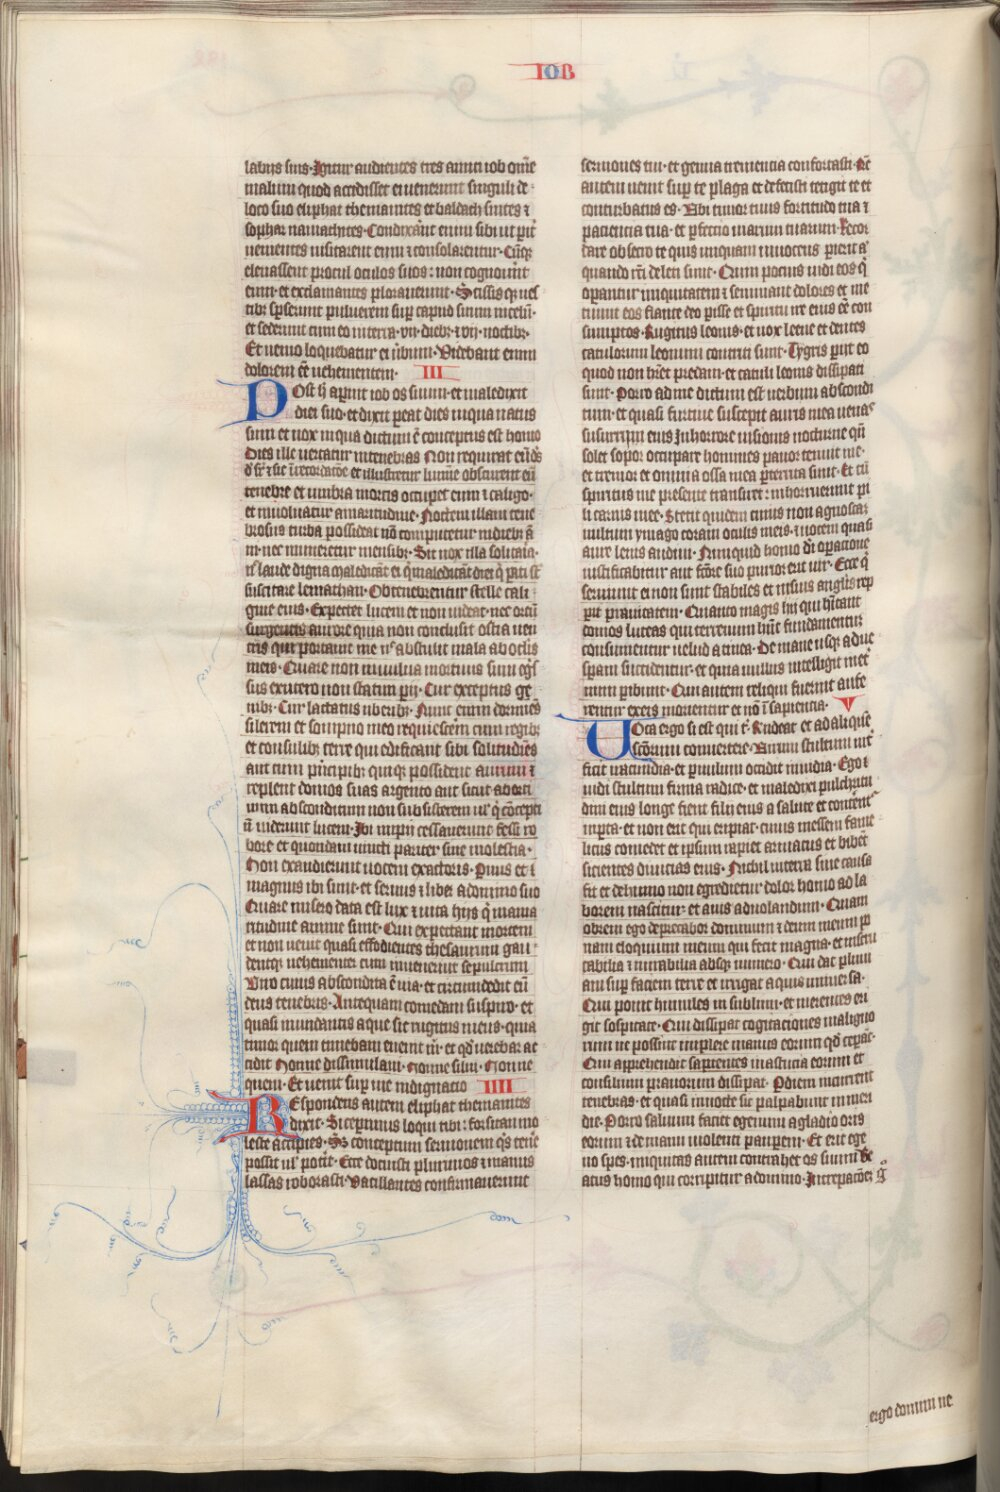 IOB
labijs suis. Igitur audientes tres amici iob om̄e
malum quod accidisset ei venerunt singuli de
loco suo eliphat themanites et baldach suites ⁊
sophar naamathites. Condixāt enim sibi ut pīt
venientes visitarent eum ⁊ consolarentur. Cūq;
eleuassent procul oculos suos: non cognouīnt
eum. et exclamantes plorauerunt. Scissisq; ves
tibꝫ spserunt puluerem sup caput suum in celū.
et sederunt cum eo in terra. vij. diebꝫ ⁊ vij. noctibꝫ.
Et nemo loquebatur ei ūbum. Videbant enim
dolorem eē vehementem. III
Post h̄ aꝑuit iob os suum. et maledixit
diei suo. et dixit peat dies in qua natus
sum et nox in qua dictum ē conceptus est homo
Dies ille vertatur in tenebras Non requirat eū dꝰ
et illustretur lumīe obscurent eū
tenebre et umbra mortis occupet eum ⁊ caligo.
et inuoluatur amaritudine. Noctem illam tene
brosus turbo possideat nō computetur in diebꝫ ā
ni. nec numeretur mensibꝫ. Sit nox illa solitaīa.
n̄ laude digna maledicāt ei q̄ maledicūt diei q̄ pati sī
suscitare leuiathan. Obtenebrentur stelle cali
gine eius. Expectet lucem et non videat. nec ortū
surgentis aurore quia non conclusit ostia ven
tris qui portauit me nᶜ abstulit mala ab oclis
meis. Quare non in vulua mortuus sum egs̄
sus ex utero non statim pij. Cur exceptus ge
nibꝫ. Cur lactatus uberibꝫ. Nunc enim dormiēs
silerem et sompno meo requiescem cum regibꝫ
et consulibꝫ terre qui edificant sibi solitudīes
aut cum pincipibꝫ qui possident aurum ⁊
replent domos suas argento aut sicut aborti
uum absconditum non subsisterem ul̄ q̄ cōcepti
n̄ viderunt lucem. Ibi impij cessauerunt fessi ro
bore et quondam vincti pariter sine molestia.
Non exaudierunt vocem exactoris. Paruus et
magnus ibi sunt. et seruus ⁊ liber a domino suo
Quare misero data est lux ⁊ vita hijs q̄ in ama
ritudine anime sunt. Qui expectant mortem
et non venit quasi effodientes thesaurum gau
dentq; vehementer cum inuenerint sepulcrum
Viro cuius abscondita ē via. et circumdedit eū
deus tenebris. Antequam comedam suspiro. et
quasi inundantis aque sic rugitus meus. quia
timor quem timebam euenit m̄. et qd̄ verebar ac
cidit Nonne dissimulaui. nonne silui. nonne
quieui. Et venit sup me indignacio IIII
Respondens autem eliphat themanites
dixit. Si ceperimus loqui tibi: forsitan mo
leste accipies. Sꝫ conceptum sermonem qis tene
possit ul̄ potīt. Ecce docuisti plurimos ⁊ manus
lassas roborasti. Vacillantes confirmauerunt
sermones tui. et genua trementia confortasti. Nc̄
autem venit sup te plaga et defecisti tetigit te et
conturbatus es. Vbi timor tuus fortitudo tua ⁊
paciencia tua. et perfectio viarum tuarum. Recor
dare obsecro te quis unquam innocens perierit a
quando rc̄i deleti sunt. Quin pocius vidi eos q̄
operantur iniquitatem ⁊ seminant dolores et me
tunt eos flante deo perisse et spiritu ire eius eē con
sumptos. Rugitus leonis. et vox leene et dentes
catulorum leonum contriti sunt. Tygris perijt eo
quod non hēret predam. et catuli leonis dissipati
sunt. Porro ad me dictum est verbum abscondi
tum. et quasi furtiue suscepit auris mea venas
susurrij eius In horrore visionis nocturne qn̄
solet sopor occupare homines pauor tenuit me.
et tremor et omnia ossa mea perterrita sunt. Et cū
spiritus me presente transiret: inhorruerunt pi
li carnis mee. Stetit quidem cuius non agnoscāz
vultum ymago coram oculis meis. ⁊ vocem quasi
aure lenis audiui. Numquid homo dī compacione
iustificabitur aut fcōre suo purior erit vir. Ecce q̄
seruiunt ei non sunt stabiles et in suis angelis rep
perit prauitatem. Quanto magis hij qui hītant
domos luteas qui terrenum hn̄t fundamentum
consumentur velud a tinea. De mane usq; ad ue
speram succidentur. et quia nullus intelligit in et
num peribunt. Qui autem reliqui fuerint aufe
rentur ex eis morientur et nō ī sapiencia. V
Uoca ergo si est qui t̄ Rndeat et ad aliquē
scōrum conuertere. Virum stultum int̄
ficit iracundia. et paruulum occidit inuidia. Ego
vidi stultum firma radice. et maledixi pulchritu
dini eius longe fient filij eius a salute et conterent
in porta. et non erit qui eripiat. cuius messem fame
licus comedet et ipsum rapiet armatus et bibēt
sicientes diuicias eius. Nichil in terra sine causa
fit et de humo non egredietur dolor homo ad la
borem nascitur. et auis ad volandum. Quam
obrem ego deprecabor dominum ⁊ deum meum po
nam eloquium meum qui fecit magna. et inscru
tabilia ⁊ mirabilia absq; numero. Qui dat pluui
am sup faciem terre et irrigat aquis uniuersa.
Qui ponit humiles in sublimi. et merentes eri
git sospitate. Qui dissipat cogitaciones malignо
rum ne possint implere manus eorum qd̄ ceperāt.
Qui apprehendit sapientes in astucia eorum et
consilium prauorum dissipat. Per diem incurrent
tenebras. et quasi in nocte sic palpabunt in meri
die. Porro saluum faciet egenum a gladio oris
eorum ⁊ de manu violenti pauperem. Et erit ege
no spes. iniquitas autem contrahet os suum be
atus homo qui corripitur a domino. Increpacōez g̊
ergo domini ne